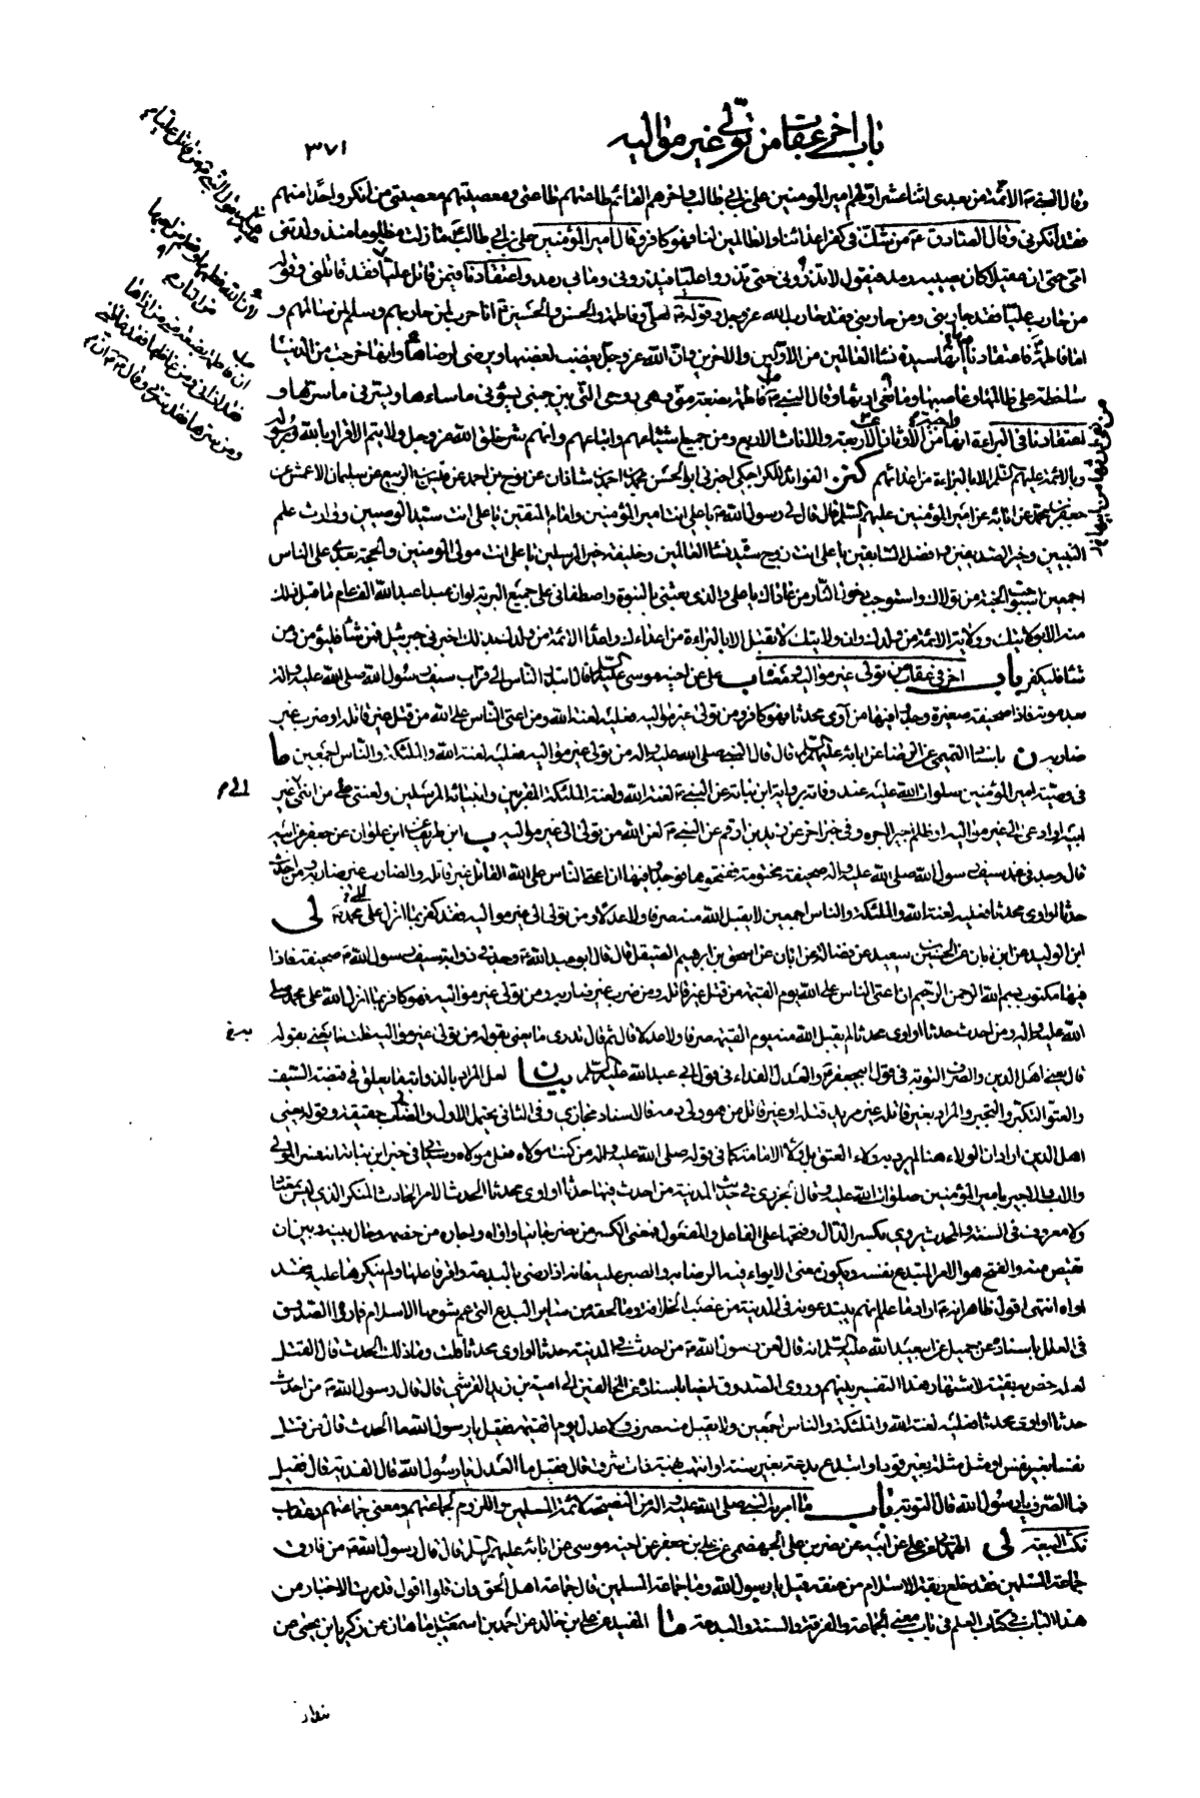 باب اخر في عقاب من تولى غير مواليه
٣٧١
وقال النبي ص الائمة من بعدي اثنا عشر اولهم امير المؤمنين علي بن ابي طالب واخرهم القائم طاعتهم طاعتي ومعصيتهم معصيتي من انكر واحدا منهم
فقد انكرني وقال الصادق ع من شك في كفر اعدائنا والظالمين لنا فهو كافر وقال امير المؤمنين علي بن ابي طالب ع ما زلت مظلوما منذ ولدتني
امي حتى ان عقيلا كان يصيبه رمد فيقول لا تذروني حتى تذروا عليا فيذروني وما بي رمد واعتقادنا فيمن قاتل عليا فقد قاتلني وقوله
من حارب عليا فقد حاربني ومن حاربني فقد حارب الله عز وجل وقوله ص لعلي وفاطمة والحسن والحسين ع انا حرب لمن حاربهم وسلم لمن سالمهم و
اما فاطمة ع فاعتقادنا انها سيدة نساء العالمين من الاولين والاخرين وان الله عز وجل يغضب لغضبها ويرضى لرضاها وانها خرجت من الدنيا
ساخطة على ظالمها وغاصبها ومانعي ارثها وقال النبي ص فاطمة بضعة مني وهي روحي التي بين جنبي يسؤني ما ساءها ويسرني ما سرها و
اعتقادنا في البراءة انها من الاوثان الاربعة والاناث الاربع ومن جميع اشياعهم واتباعهم وانهم شر خلق الله عز وجل ولا يتم الاقرار بالله وبرسوله
وبالائمة عليهم السلام الا بالبراءة من اعدائهم كنز الفوائد للكراجكي اخبرني ابو الحسن محمد بن احمد بن شاذان عن نوح بن احمد عن قيس بن الربيع عن سليمان الاعمش عن
جعفر بن محمد عن ابائه عن امير المؤمنين عليهم السلام قال قال لي رسول الله ص يا علي انت امير المؤمنين وامام المتقين يا علي انت سيد الوصيين ووارث علم
النبيين وخير الصديقين وافضل السابقين يا علي انت زوج سيدة نساء العالمين وخليفة خير المرسلين يا علي انت مولى المؤمنين والحجة بعدي على الناس
اجمعين استوجب الجنة من تولاك واستوجب دخول النار من عاداك يا علي والذي بعثني بالنبوة واصطفاني على جميع البرية لو ان عبدا عبد الله الف عام ما قبل ذلك
منه الا بولايتك وولاية الائمة من ولدك وان ولايتك لا تقبل الا بالبراءة من اعدائك واعداء الائمة من ولدك بذلك اخبرني جبرئيل فمن شاء فليؤمن ومن
شاء فليكفر باب اخر في عقاب من تولى غير مواليه ومعناه ب علي عن اخيه موسى عليه السلام قال ابتدر الناس الى قراب سيف رسول الله صلى الله عليه واله
بعد موته فاذا صحيفة صغيرة وجد فيها من آوى محدثا فهو كافر ومن تولى غير مواليه فعليه لعنة الله ومن اعتى الناس على الله من قتل غير قاتله او ضرب غير
ضاربه ن باسناد التميمي عن الرضا عن ابائه عليهم السلام قال قال النبي صلى الله عليه واله من تولى غير مواليه فعليه لعنة الله والملئكة والناس اجمعين ما
في وصية امير المؤمنين صلوات الله عليه عند وفاته برواية ابن نباتة عن النبي ص لعنة الله ولعنة الملئكة المقربين وانبيائه المرسلين ولعنتي على من انتمى غير
ابيه او ادعى الى غير مواليه او ظلم اجيرا اجره وفي خبر اخر عن زيد بن ارقم عن النبي ص لعن الله من تولى الى غير مواليه ب ابن طريف عن ابن علوان عن جعفر عن ابيه
قال وجد في غمد سيف رسول الله صلى الله عليه واله صحيفة مختومة ففتحوها فوجدوا فيها ان اعتى الناس على الله القاتل غير قاتله والضارب غير ضاربه ومن احدث
حدثا او اوى محدثا فعليه لعنة الله والملئكة والناس اجمعين لا يقبل الله منه صرفا ولا عدلا ومن تولى الى غير مواليه فقد كفر بما انزل على محمد ص لي
ابن الوليد عن ابن ابان عن الحسين بن سعيد عن فضالة عن ابان عن اسحق بن ابراهيم الصيقل قال قال ابو عبد الله ع وجد في ذؤابة سيف رسول الله ص صحيفة فاذا
فيها مكتوب بسم الله الرحمن الرحيم ان اعتى الناس على الله يوم القيمة من قتل غير قاتله ومن ضرب غير ضاربه ومن تولى غير مواليه فهو كافر بما انزل الله على محمد صلى
الله عليه واله ومن احدث حدثا او اوى محدثا لم يقبل الله منه يوم القيمة صرفا ولا عدلا قال ثم قال تدري ما يعني بقوله من تولى غير مواليه قلت ما يعني بقوله
قال يعني اهل الدين والصرف التوبة في قول ابي جعفر ع والعدل الفداء في قول ابي عبد الله عليه السلم بيان لعل المراد بالذؤابة ما يعلق في قبضة السيف
والعتو التكبر والتجبر والمراد بغير قاتله غير مريد قتله او غير قاتل من هو ولي دمه فالاسناد مجازي وفي الثاني يحتمل الاول والضارب حقيقة وقوله يعني
اهل الدين اراد ان الولاء هنا لم يرد به ولاء العتق بل ولاء الامامة كما في قوله صلى الله عليه واله من كنت مولاه فعلي مولاه وسياتي في خبر ابن نباتة تفسير المولى
والاب والاجير بامير المؤمنين صلوات الله عليه وقال الجزري في حديث المدينة من احدث فيها حدثا او اوى محدثا الحدث الامر الحادث المنكر الذي ليس بمعتاد
ولا معروف في السنة والمحدث يروى بكسر الدال وفتحها على الفاعل والمفعول فمعنى الكسر من نصر جانيا واواه واجاره من خصمه وحال بينه وبين ان
يقتص منه والفتح هو الامر المبتدع نفسه ويكون معنى الايواء فيه الرضا به والصبر عليه فانه اذا رضي بالبدعة واقر فاعلها ولم ينكرها عليه فقد
اواه انتهى اقول ظاهر انه ص اراد ما علم انهم يبتدعونه في المدينة من غصب الخلافة وما لحقه من سائر البدع التي عم شومها الاسلام فما رواه الصدوق
في العلل باسناده عن جميل عن ابي عبد الله عليه السلم انه قال لعن رسول الله ص من احدث في المدينة حدثا او اوى محدثا قلت وما ذلك الحدث قال القتل
لعله خص به تقية لاشتهار هذا التفسير بينهم وروى الصدوق ايضا باسناده عن المخالفين الى امية بن زيد القرشي قال قال رسول الله ص من احدث
حدثا او اوى محدثا فعليه لعنة الله والملئكة والناس اجمعين ولا يقبل منه صرف ولا عدل يوم القيمة فقيل يا رسول الله ما الحدث قال من قتل
نفسا بغير نفس او مثل مثلة بغير قود او ابتدع بدعة بغير سنة او انتهب نهبة ذات شرف قال فقيل ما العدل يا رسول الله قال الفدية قال فقيل
فما الصرف يا رسول الله قال التوبة باب ما امر به النبي صلى الله عليه واله من النصيحة لائمة المسلمين واللزوم لجماعتهم ومعنى جماعتهم وعقاب
نكث البيعة لي الهمداني عن علي عن ابيه عن نصر بن علي الجهضمي عن علي بن جعفر عن اخيه موسى عن ابائه عليهم السلم قال قال رسول الله ص من فارق
جماعة المسلمين فقد خلع ربقة الاسلام من عنقه قيل يا رسول الله وما جماعة المسلمين قال جماعة اهل الحق وان قلوا اقول قد مر مثله الاخبار من
هذا الباب في كتاب العلم في باب معنى الجماعة والفرقة والسنة والبدعة ما المفيد عن علي بن خالد عن احمد بن اسمعيل بن ماهان عن زكريا بن يحيى عن